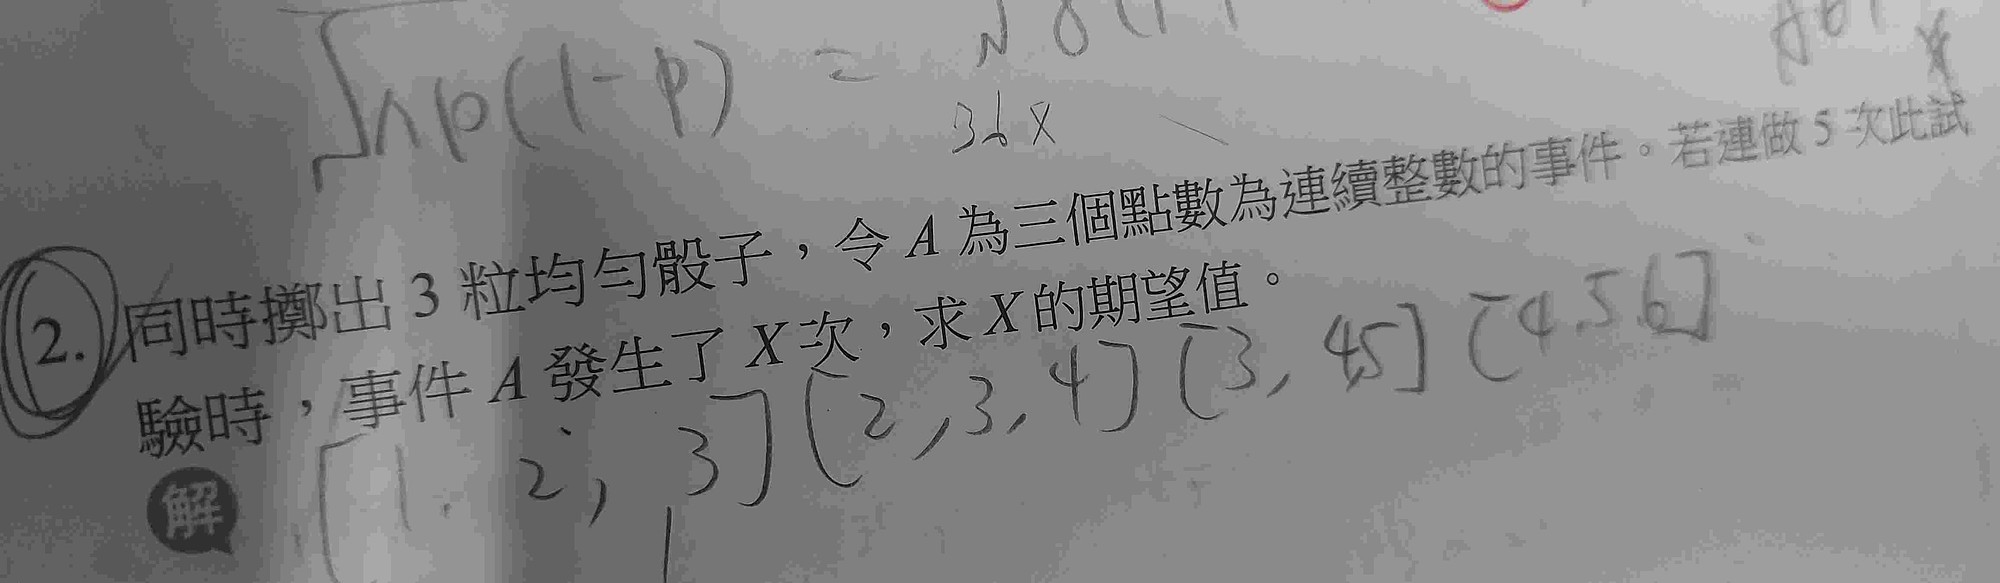 √np(1-p) =
36x
2. 同時擲出 3 粒均勻骰子，令 A 為三個點數為連續整數的事件。若連做 5 次此試
驗時，事件 A 發生了 X 次，求 X 的期望值。
解 [1, 2, 3] [2, 3, 4] [3, 4,5] [4,5,6]